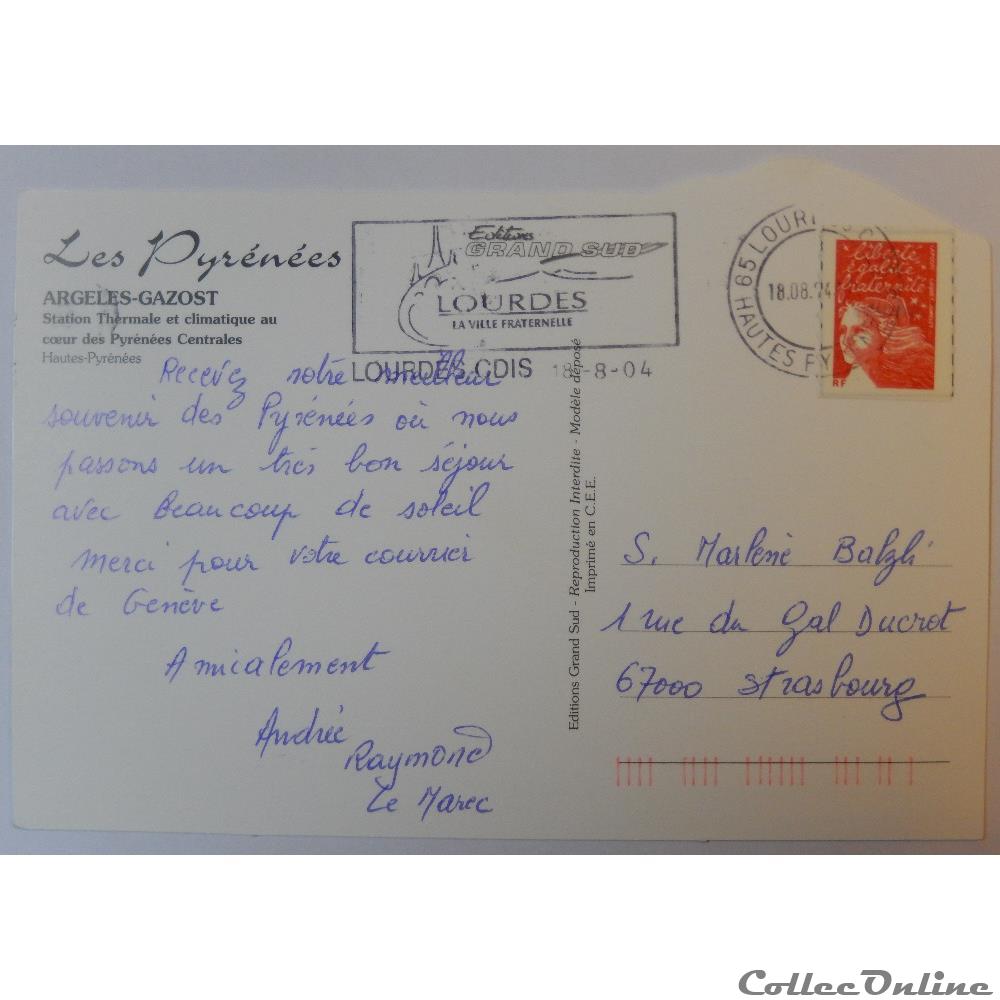 Les Pyrénées
ARGELES-GAZOST
Station Thermale et climatique au
cœur des Pyrénées Centrales
Hautes-Pyrénées
Editions
GRAND SUD
LOURDES
LA VILLE FRATERNELLE
LOURDES CDIS 18-8-04
65 LOURDES
18.08.
HAUTES PY
liberté
égalité
fraternité
RF
Recevez notre meilleur
souvenir des Pyrénées où nous
passons un très bon séjour
avec Beaucoup de soleil
Merci pour votre courrier
de Genève
Amicalement
Andrée
Raymond
Le Marec
Editions Grand Sud - Reproduction Interdite - Modèle déposé
Imprimé en C.E.E.
S. Marlène Balzli
1 rue du Gal Ducrot
67000 Strasbourg
CollecOnline